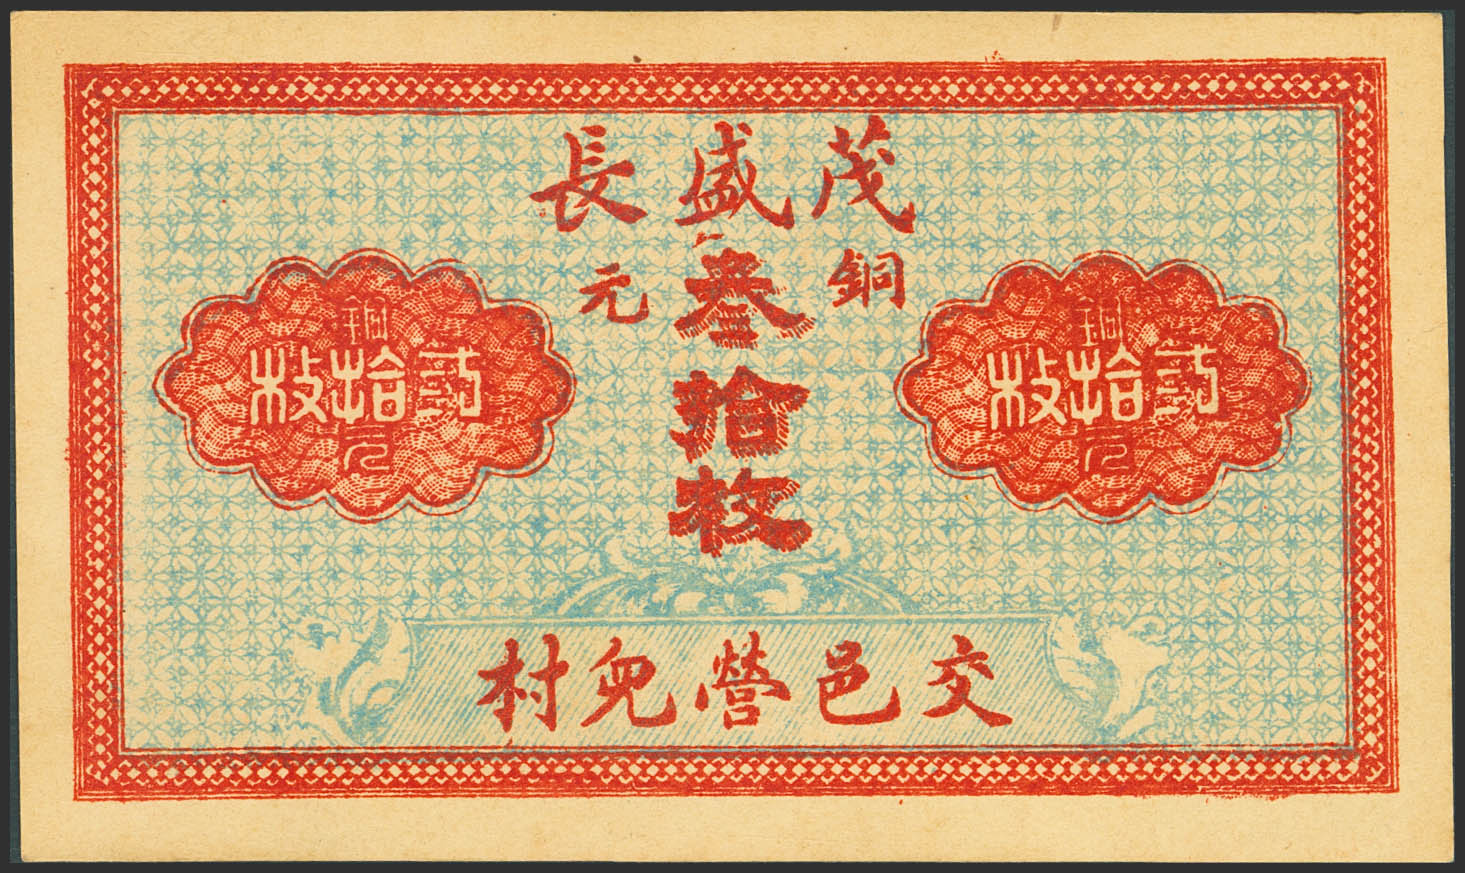 茂盛長
銅元
叁拾枚
銅元
弎拾枚
銅元
弎拾枚
交邑營兒村